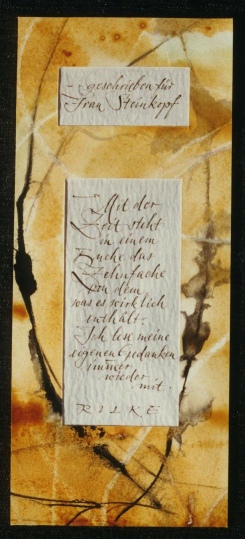 geschrieben für
Frau Steinkopf
Mit der
Zeit steht
in einem
Buche das
Zehnfache
von dem
was es wirklich
enthält.
Ich lese meine
eigenen Gedanken
immer
wieder
mit.
RILKE